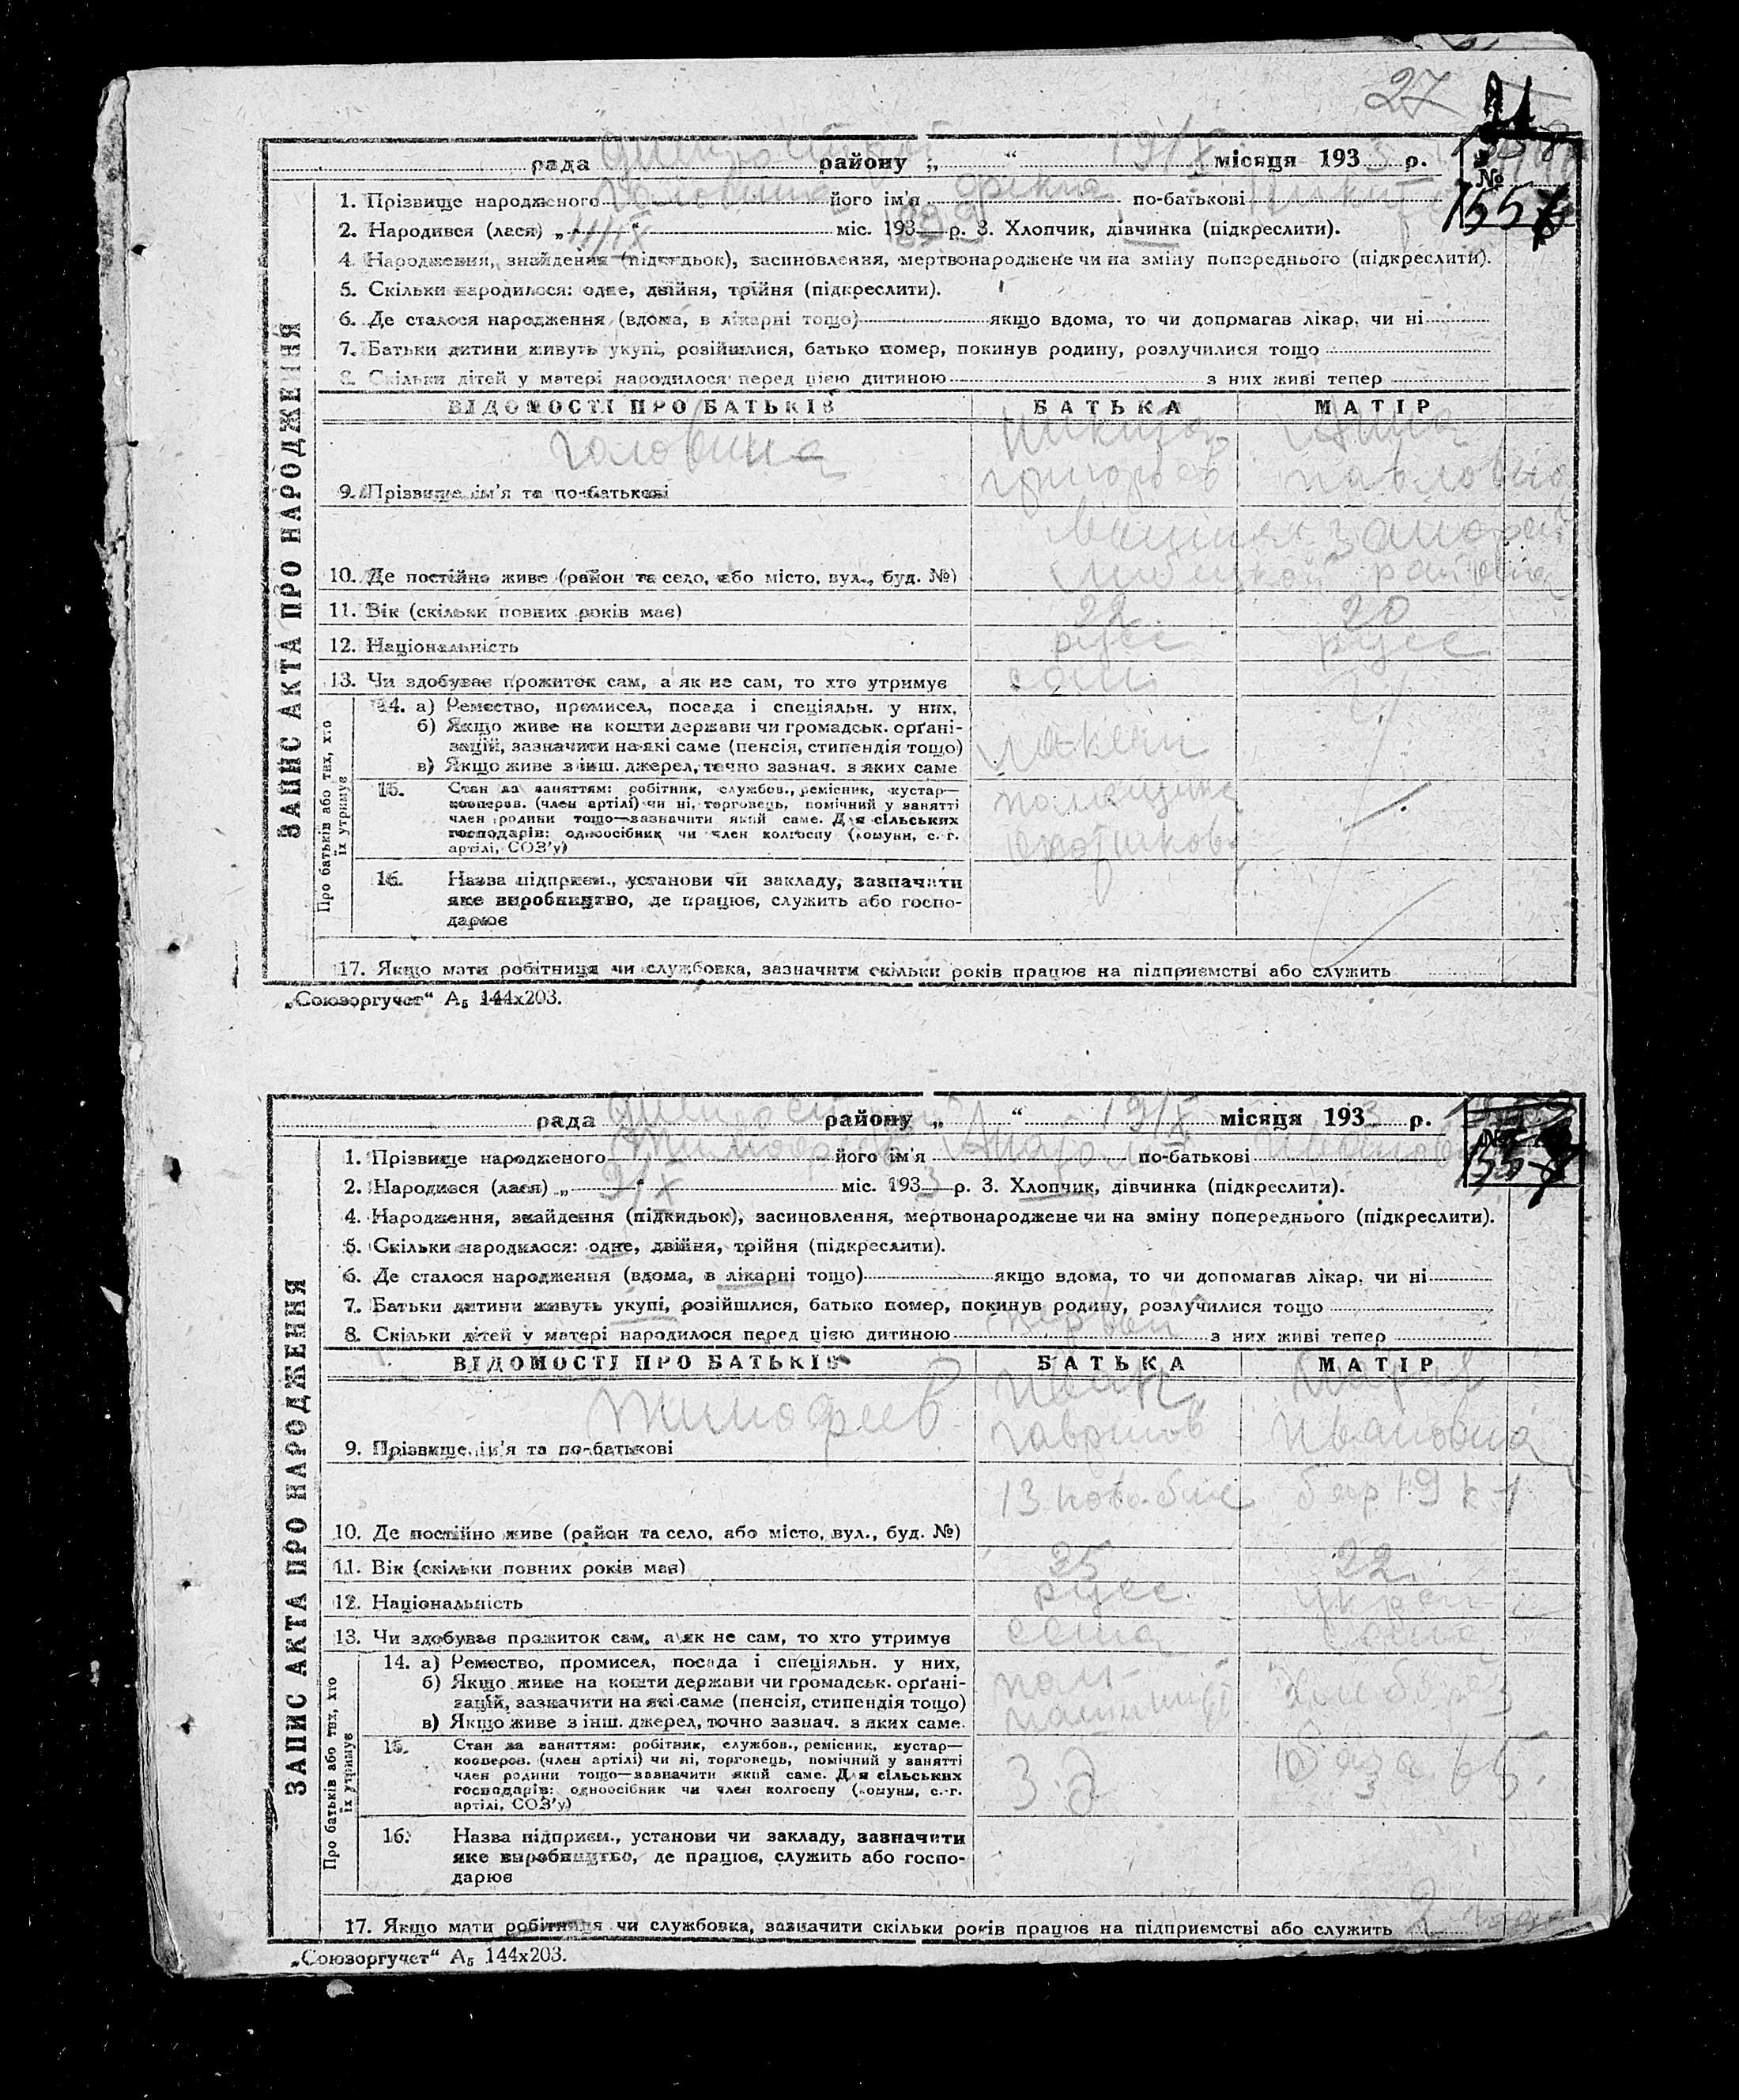 27
рада района „ “ 19/X місяця 1933 р.
№
1. Прізвище народженого Головина його ім'я по-батькові
2. Народився (лася) „ “ міс. 193 р. 3. Хлопчик, дівчинка (підкреслити).
4. Народження, знайдення (підкидьок), засиновлення, мертвонароджене чи на зміну попереднього (підкреслити).
5. Скільки народилося: одне, двійня, трійня (підкреслити).
6. Де сталося народження (вдома, в лікарні тощо) якщо вдома, то чи допомагав лікар, чи ні
7. Батьки дитини живуть укупі, розійшлися, батько помер, покинув родину, розлучилися тощо
8. Скільки дітей у матері народилося перед цією дитиною з них живі тепер
ЗАПИС АКТА ПРО НАРОДЖЕННЯ
ВІДОМОСТІ ПРО БАТЬКІВ БАТЬКА МАТІР
Головина Никита Анна
9. Прізвище ім'я та по-батькові Григорьев Павловна
10. Де постійно живе (район та село, або місто, вул., буд. №) района
11. Вік (скільки повних років має) 22 20
12. Національність русс русс
13. Чи здобуває прожиток сам, а як не сам, то хто утримує сам
Про батьків або тих, хто їх утримує
14. а) Ремество, промисел, посада і спеціяльн. у них.
б) Якщо живе на кошти держави чи громадськ. орґані-
зацій, зазначити на які саме (пенсія, стипендія тощо)
в) Якщо живе з інш. джерел, точно зазнач. з яких саме
15. Стан за заняттям: робітник, службов., ремісник, кустар—
кооперов. (член артілі) чи ні, торговець, помічний у занятті
член родини тощо—зазначити який саме. Для сільських
господарів: одноосібник чи член колгоспу (комуни, с.-г.
артілі, СОЗ'у)
16. Назва підприєм., установи чи закладу, зазначити
яке виробництво, де працює, служить або госпо-
дарює
17. Якщо мати робітниця чи службовка, зазначити скільки років працює на підприємстві або служить
„Союзоргучет“ А₅ 144х203.
рада району „ “ 19/X місяця 1933 р.
№
1. Прізвище народженого Тимофеев його ім'я Анатол по-батькові Иванов
2. Народився (лася) „ 9/X “ міс. 1933 р. 3. Хлопчик, дівчинка (підкреслити).
4. Народження, знайдення (підкидьок), засиновлення, мертвонароджене чи на зміну попереднього (підкреслити).
5. Скільки народилося: одне, двійня, трійня (підкреслити).
6. Де сталося народження (вдома, в лікарні тощо) якщо вдома, то чи допомагав лікар, чи ні
7. Батьки дитини живуть укупі, розійшлися, батько помер, покинув родину, розлучилися тощо
8. Скільки дітей у матері народилося перед цією дитиною первый з них живі тепер
ЗАПИС АКТА ПРО НАРОДЖЕННЯ
ВІДОМОСТІ ПРО БАТЬКІВ БАТЬКА МАТІР
Тимофеев Иван Мария
9. Прізвище, ім'я та по-батькові Гаврилов Ивановна
13 бар 19 к 1
10. Де постійно живе (район та село, або місто, вул., буд. №)
11. Вік (скільки повних років має) 25 22
12. Національність русс украин
13. Чи здобуває прожиток сам, а як не сам, то хто утримує сама
Про батьків або тих, хто їх утримує
14. а) Ремество, промисел, посада і спеціяльн. у них, пом
б) Якщо живе на кошти держави чи громадськ. орґані-
зацій, зазначити на які саме (пенсія, стипендія тощо) машинист
в) Якщо живе з інш. джерел, точно зазнач. з яких саме.
15. Стан за заняттям: робітник, службов., ремісник, кустар—
кооперов. (член артілі) чи ні, торговець, помічний у занятті
член родини тощо—зазначити який саме. Для сільських
господарів: одноосібник чи член колгоспу (комуни, с.-г.
артілі, СОЗ'у)
16. Назва підприєм., установи чи закладу, зазначити
яке виробництво, де працює, служить або госпо-
дарює
17. Якщо мати робітниця чи службовка, зазначити скільки років працює на підприємстві або служить 2 года
„Союзоргучет“ А₅ 144х203.